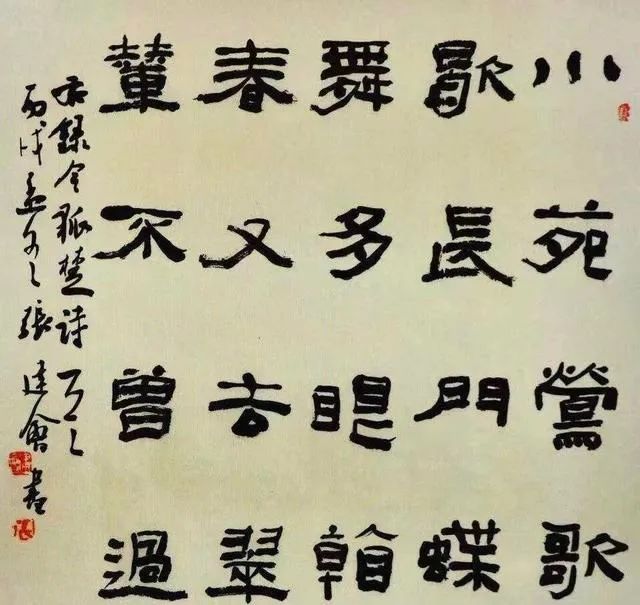 小苑鶯歌
歇長門蝶
舞多眼看
春又去翠
輦不曾過
右録令狐楚詩一首
丙戌孟張建會書